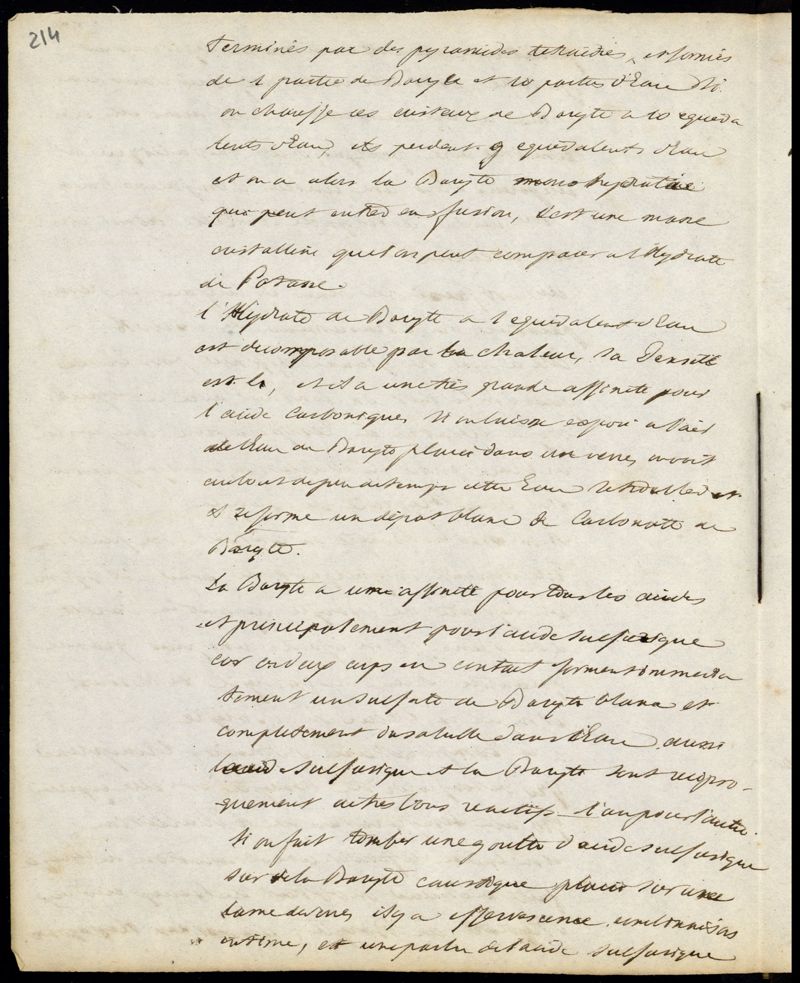 214
terminés par des pyramides tetraidres, et formés
de 1 partie de Baryte et 10 parties d'Eau Si
on chauffe ces cristaux de Baryte a 10 equiva
lents d'Eau, ils perdent 9 equivalents d'Eau
et on a alors la Baryte monohydratée
qui peut entrer en fusion, c'est une masse
cristalline que l'on peut comparer a l'Hydrate
de Potasse.
l'Hydrate de Baryte a 1 equivalent d'Eau
est decomposable par la chaleur, sa Densité
est 4, et il a une très grande affinité pour
l'acide Carbonique, Si on laisse exposé a l'air
de l'Eau de Baryte placé dans un verre, on voit
au bout de peu de temps cette Eau se troubler et
il se forme un dépot blanc de Carbonate de
Baryte.
La Baryte a une affinité pour tous les acides
et principalement pour l'acide sulfurique
car ces deux corps en contact forment immédia
tement un sulfate de Baryte blanc et
completement insoluble dans l'Eau, aussi
l'acide sulfurique et la Baryte sont recipro-
quement de très bons reactifs l'un pour l'autre.
Si on fait tomber une goutte d'acide sulfurique
sur de la Baryte caustique placée sur une
lame de verre il y a effervescence, combinaison
intime, et une partie de l'acide sulfurique